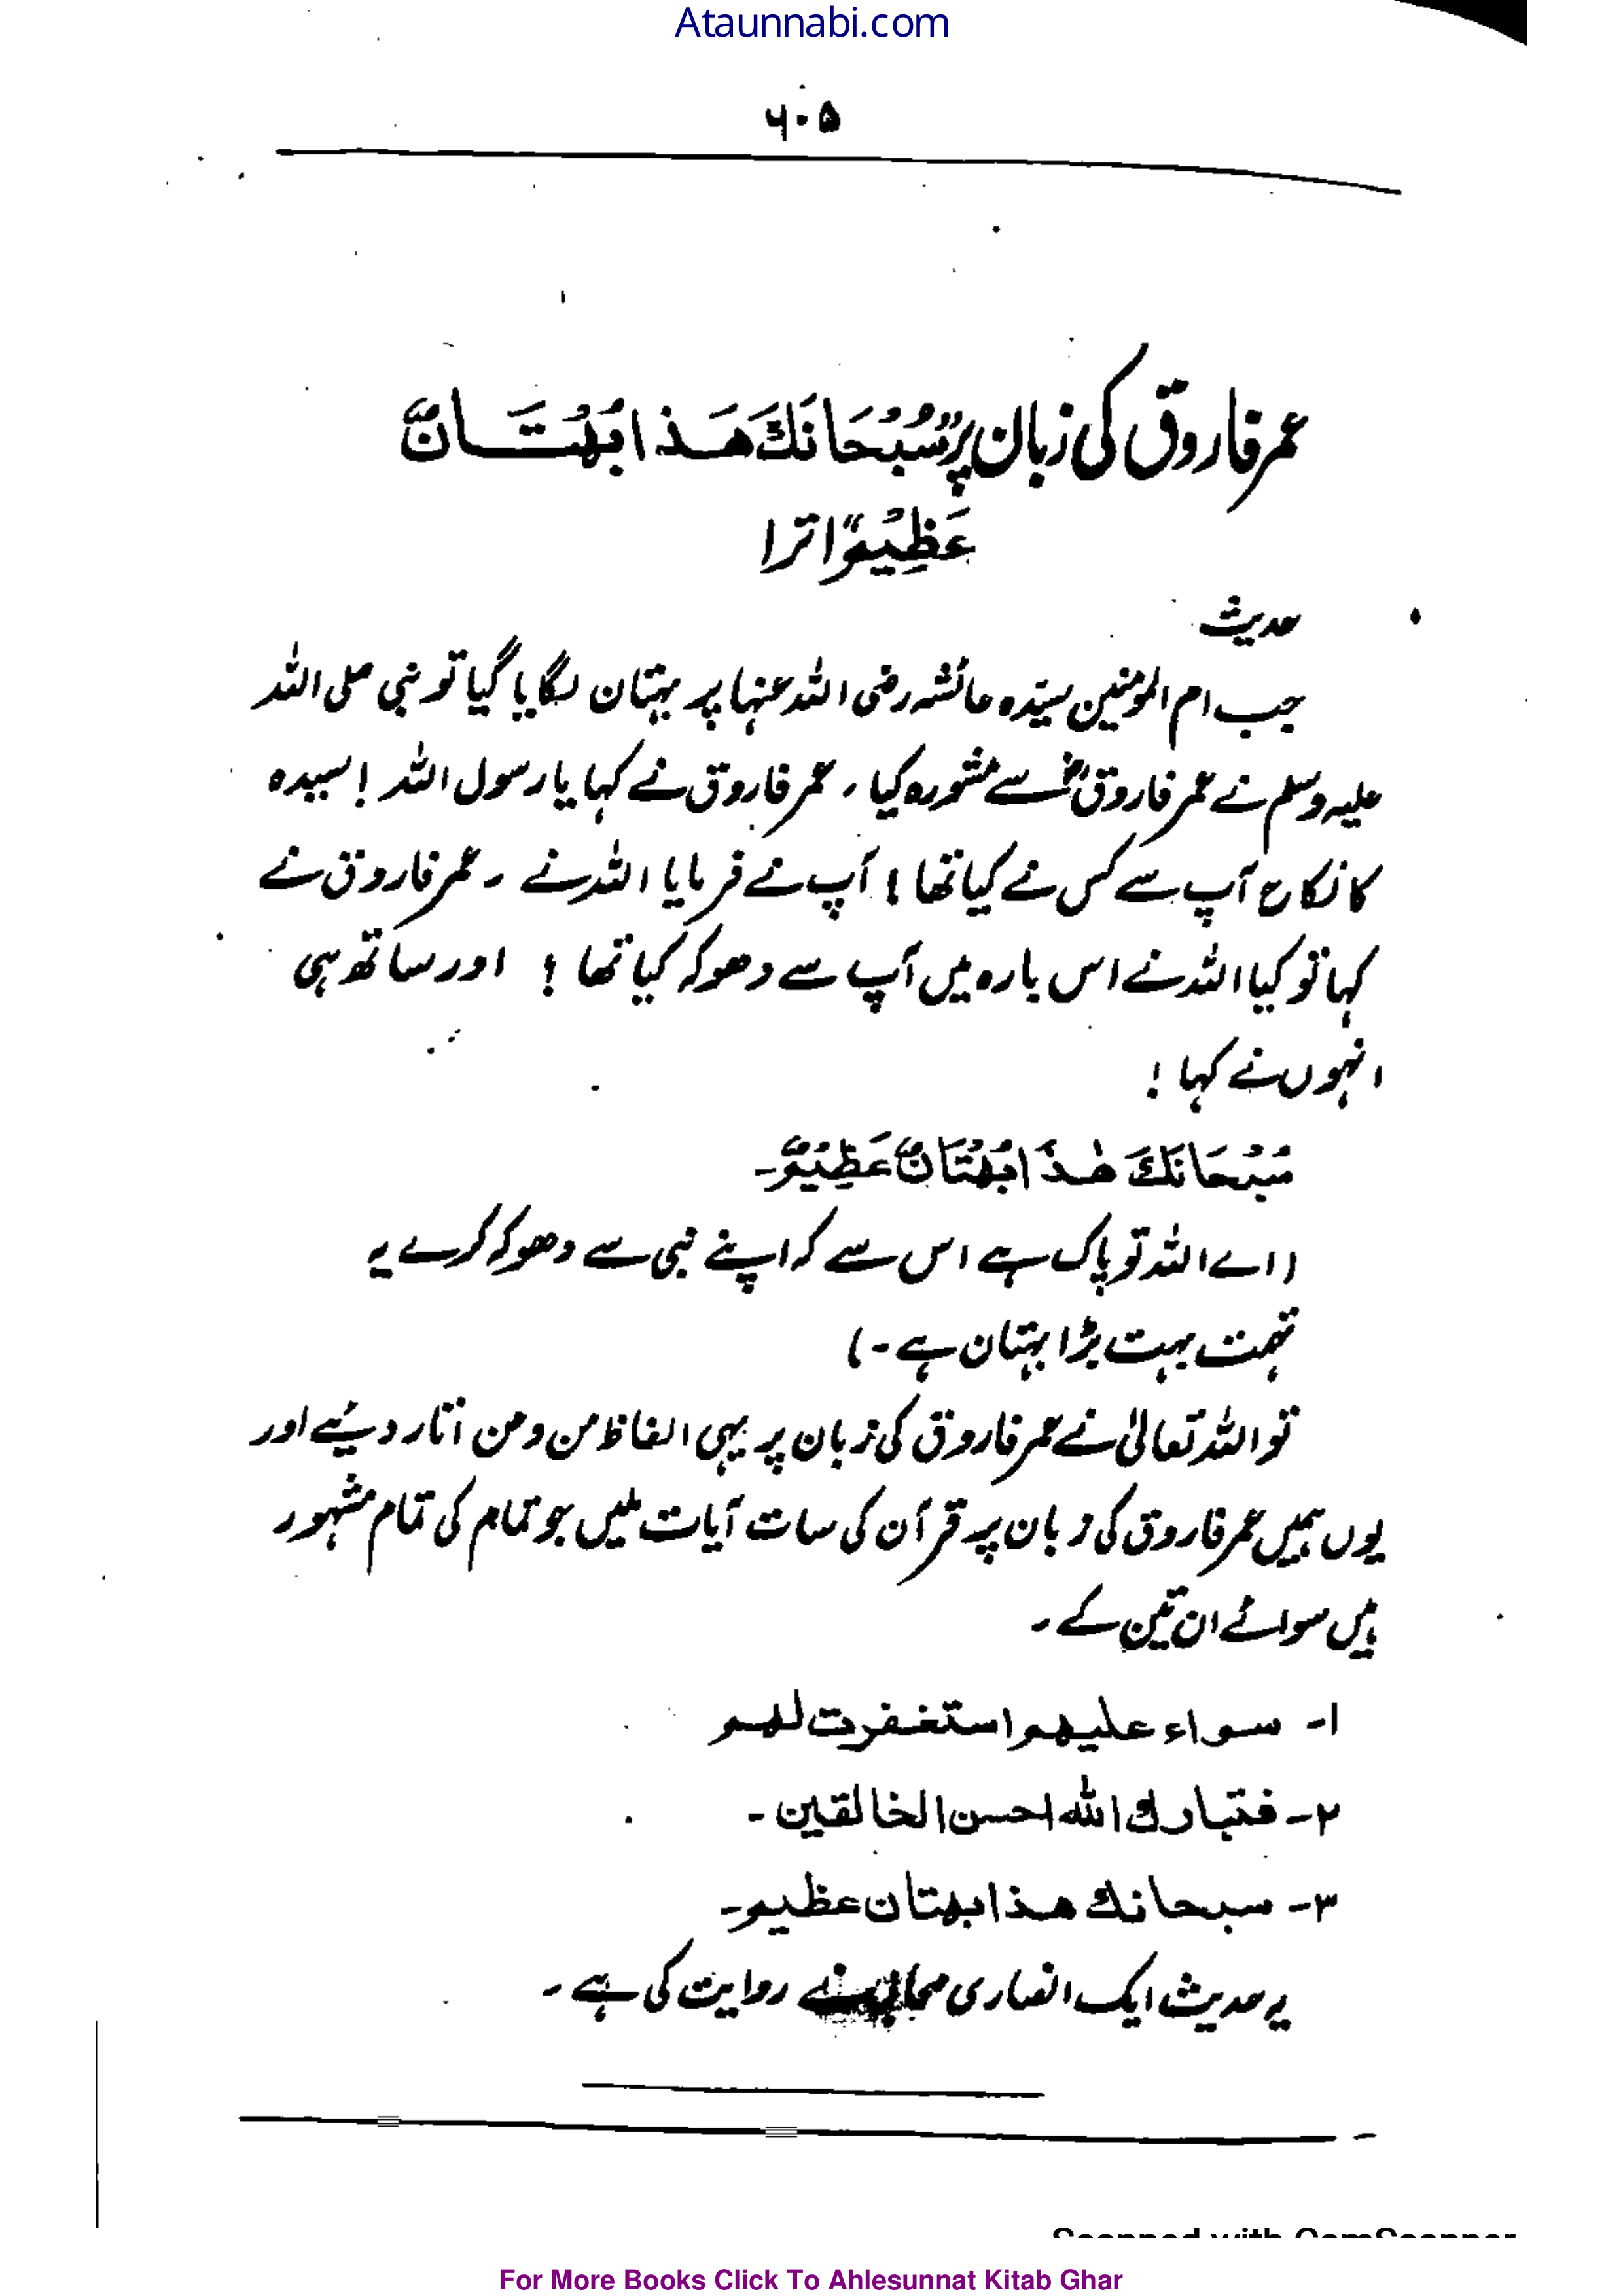 Ataunnabi.com
۶۰۵
عمر فاروق کی زبان پر "سُبْحَانَكَ هَذَا بُهْتَانٌ
عَظِيْمٌ" اترا
حدیث
جب ام المومنین سیّدہ عائشہ رضی اللہ عنہا پر بہتان لگایا گیا تو نبی صلی اللہ
علیہ وسلم نے عمر فاروقؓ سے مشورہ کیا ، عمر فاروق نے کہا یا رسول اللہ ! سیدہ
کا نکاح آپ سے کس نے کیا تھا ؟ آپ نے فرمایا اللہ نے ۔ عمر فاروق نے
کہا تو کیا اللہ نے اس بارہ میں آپ سے دھوکہ کیا تھا ؟ اور ساتھ ہی
انہوں نے کہا !
سُبْحَانَكَ هٰذَا بُهْتَانٌ عَظِيْمٌ ۔
(اے اللہ تو پاک ہے اس سے کہ اپنے نبی سے دھوکہ کرے یہ
تہمت بہت بڑا بہتان ہے ۔)
تو اللہ تعالیٰ نے عمر فاروق کی زبان پر یہی الفاظ من و من اتار دیئے اور
یوں ہمیں عمر فاروق کی زبان پر قرآن کی سات آیات ملیں جو تمام کی تمام مشہور
ہیں سوائے ان تین کے ۔
۱- سواء عليهم استغفرت لهم
۲- فتبارك الله احسن الخالقين ۔
۳- سبحانك هذا بهتان عظيم ۔
یہ حدیث ایک انصاری صحابی نے روایت کی ہے ۔
Scanned with CamScanner
For More Books Click To Ahlesunnat Kitab Ghar